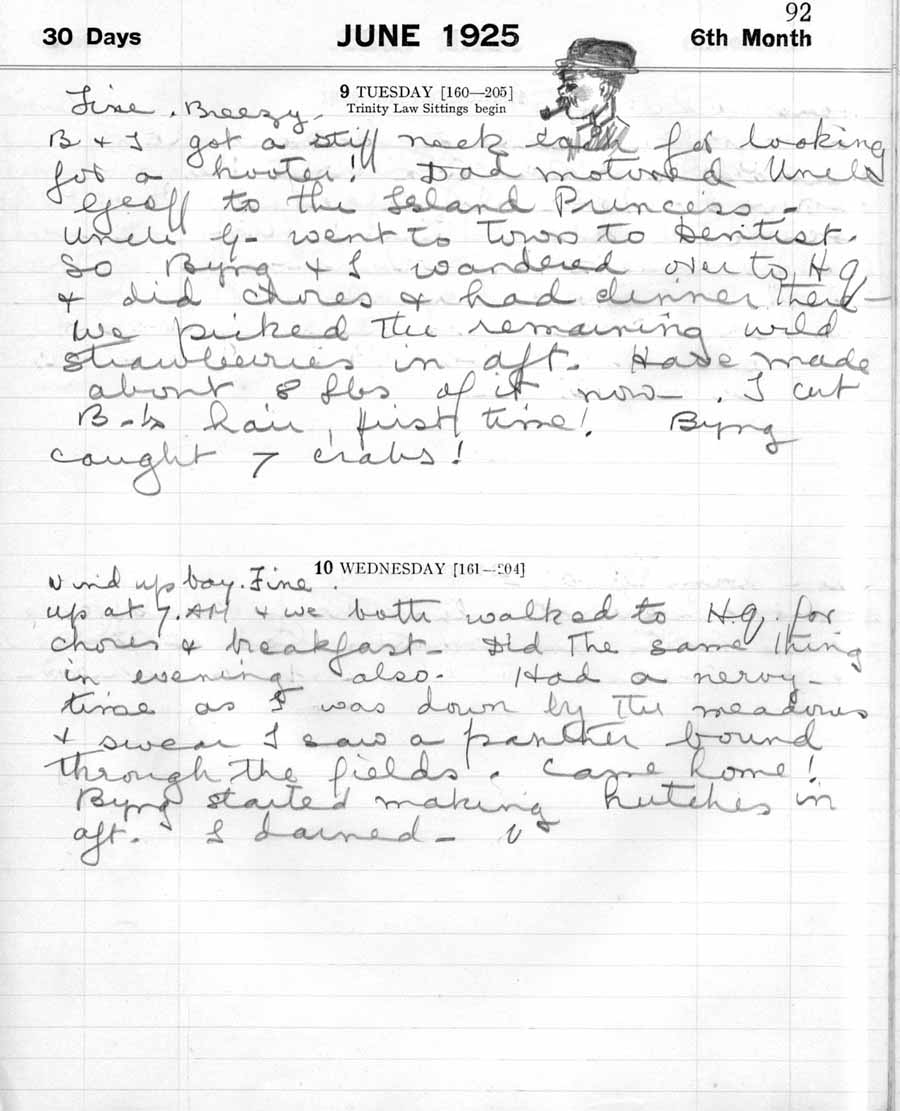 92
30 Days JUNE 1925 6th Month
9 TUESDAY [160—205]
Trinity Law Sittings begin
Fine. Breezy.
B & I got a stiff neck each for looking
for a hooter! Dad motored Uncle
Geoff to the Island Princess -
Uncle G- went to Town to Dentist.
So Byng & I wandered over to H Q
& did chores & had dinner there -
We picked the remaining wild
strawberries in aft. Have made
about 8 lbs of it now. I cut
B-'s hair, first time! Byng
caught 7 crabs!
10 WEDNESDAY [161—204]
Wind up bay. Fine.
up at 7. AM & we both walked to H.Q. for
chores & breakfast - Did the same thing
in evening also. Had a nervy -
time as I was down by the meadows
& swear I saw a panther bound
through the fields. Came home!
Byng started making hutches in
aft. I darned -